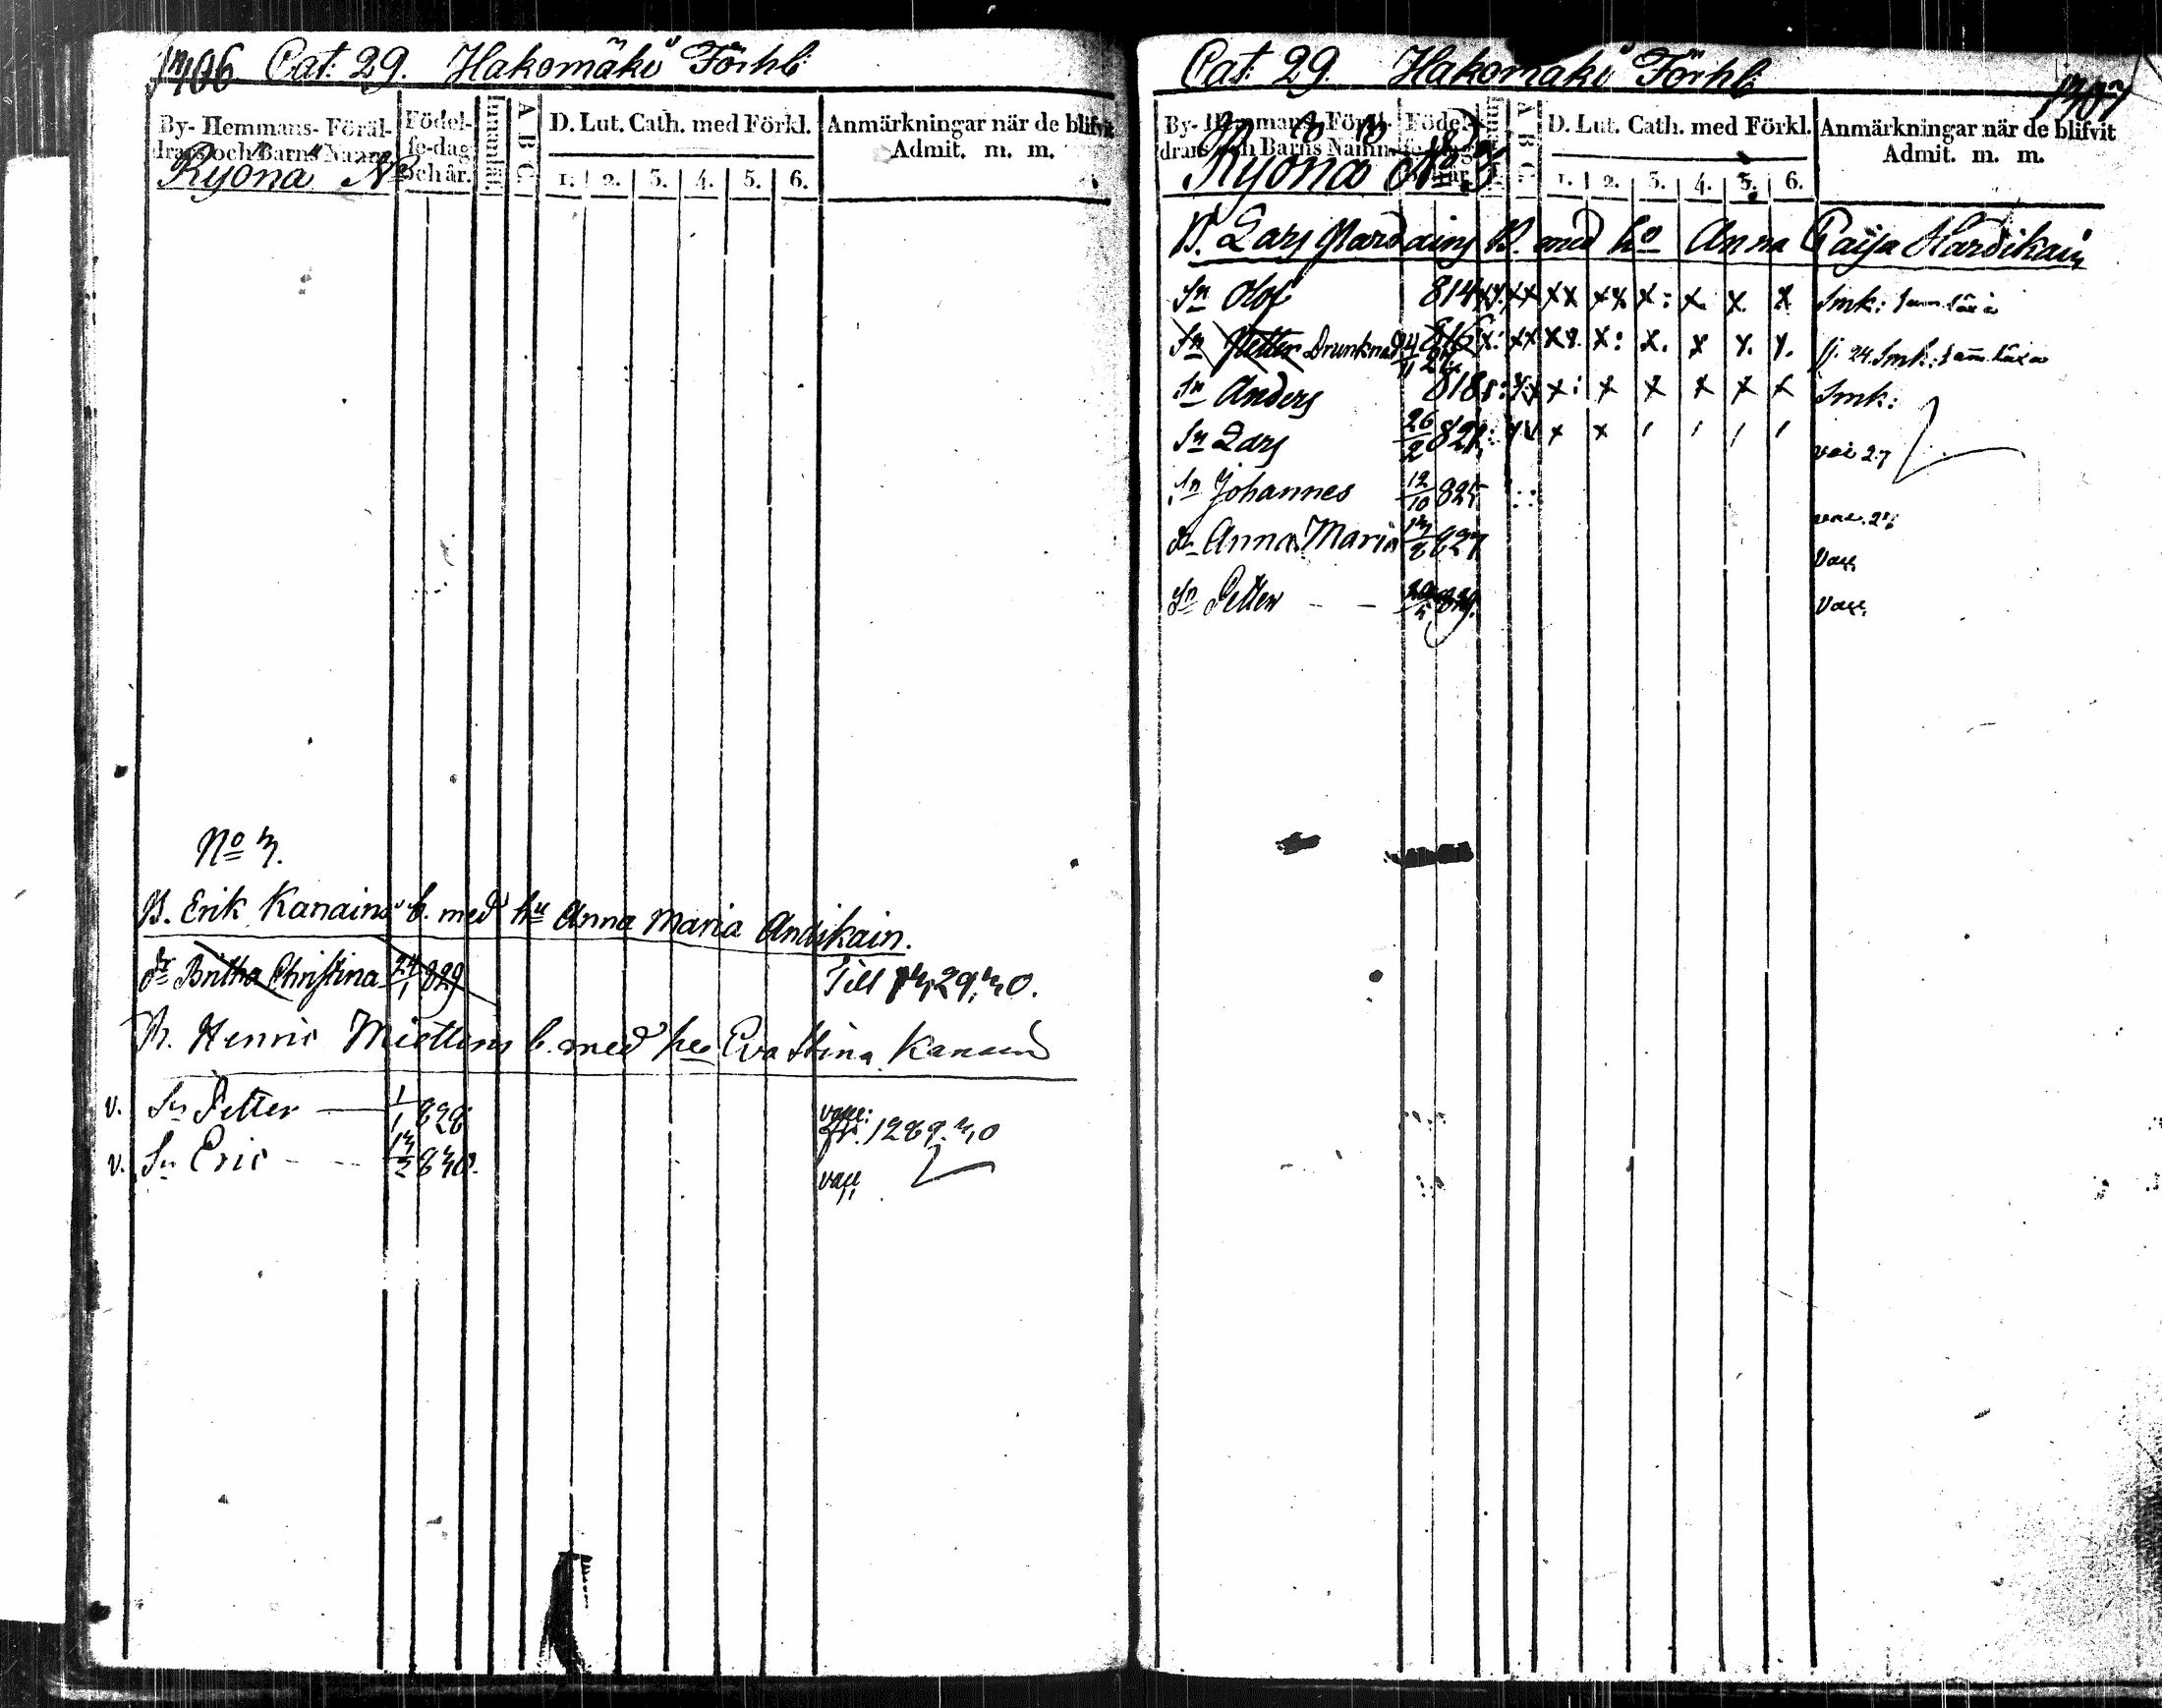 1306 Cat. 29. Hakomäki Förhb:
By- Hemmans- Föräl-
drars och Barns Namn.
Födel-
se-dag
och år.
A B C.
D. Lut. Cath. med Förkl.
1. 2. 3. 4. 5. 6.
Anmärkningar när de blifvit
Admit. m. m.
Ryönä No
No 3.
B. Erik Kanains b. med hu Anna Maria Andikain.
dr Britha Christina 24/1 829 Till 1329.30.
Henric Miettins b. med hu Eva Stina Kanain
v. Sn Petter 1/1 828 vacc: fr. 1289.30
v. Sn Eric 13/2 830. vacc
Cat. 29. Hakomäki Förhb: 1307
By- Hemmans- Föräl-
drars och Barns Namn.
Födel-
A B C.
D. Lut. Cath. med Förkl.
1. 2. 3. 4. 5. 6.
Anmärkningar när de blifvit
Admit. m. m.
Ryönä No 3
B. Lars B. med hu Anna Caisa Hardikain
Sn Olof 814 x x x x x x x x Smk:
Sn Petter Drunknad 816 x: xx x x. x: x. x x. x. 24. Smk:
Sn Anders 818 x: x x x x x Smk:
Sn Lars 26/2 821 x x vac 27
Sn Johannes 12/10 825
dr Anna Maria 13/8 827 Vacc.
Sn Petter 829. Vacc.